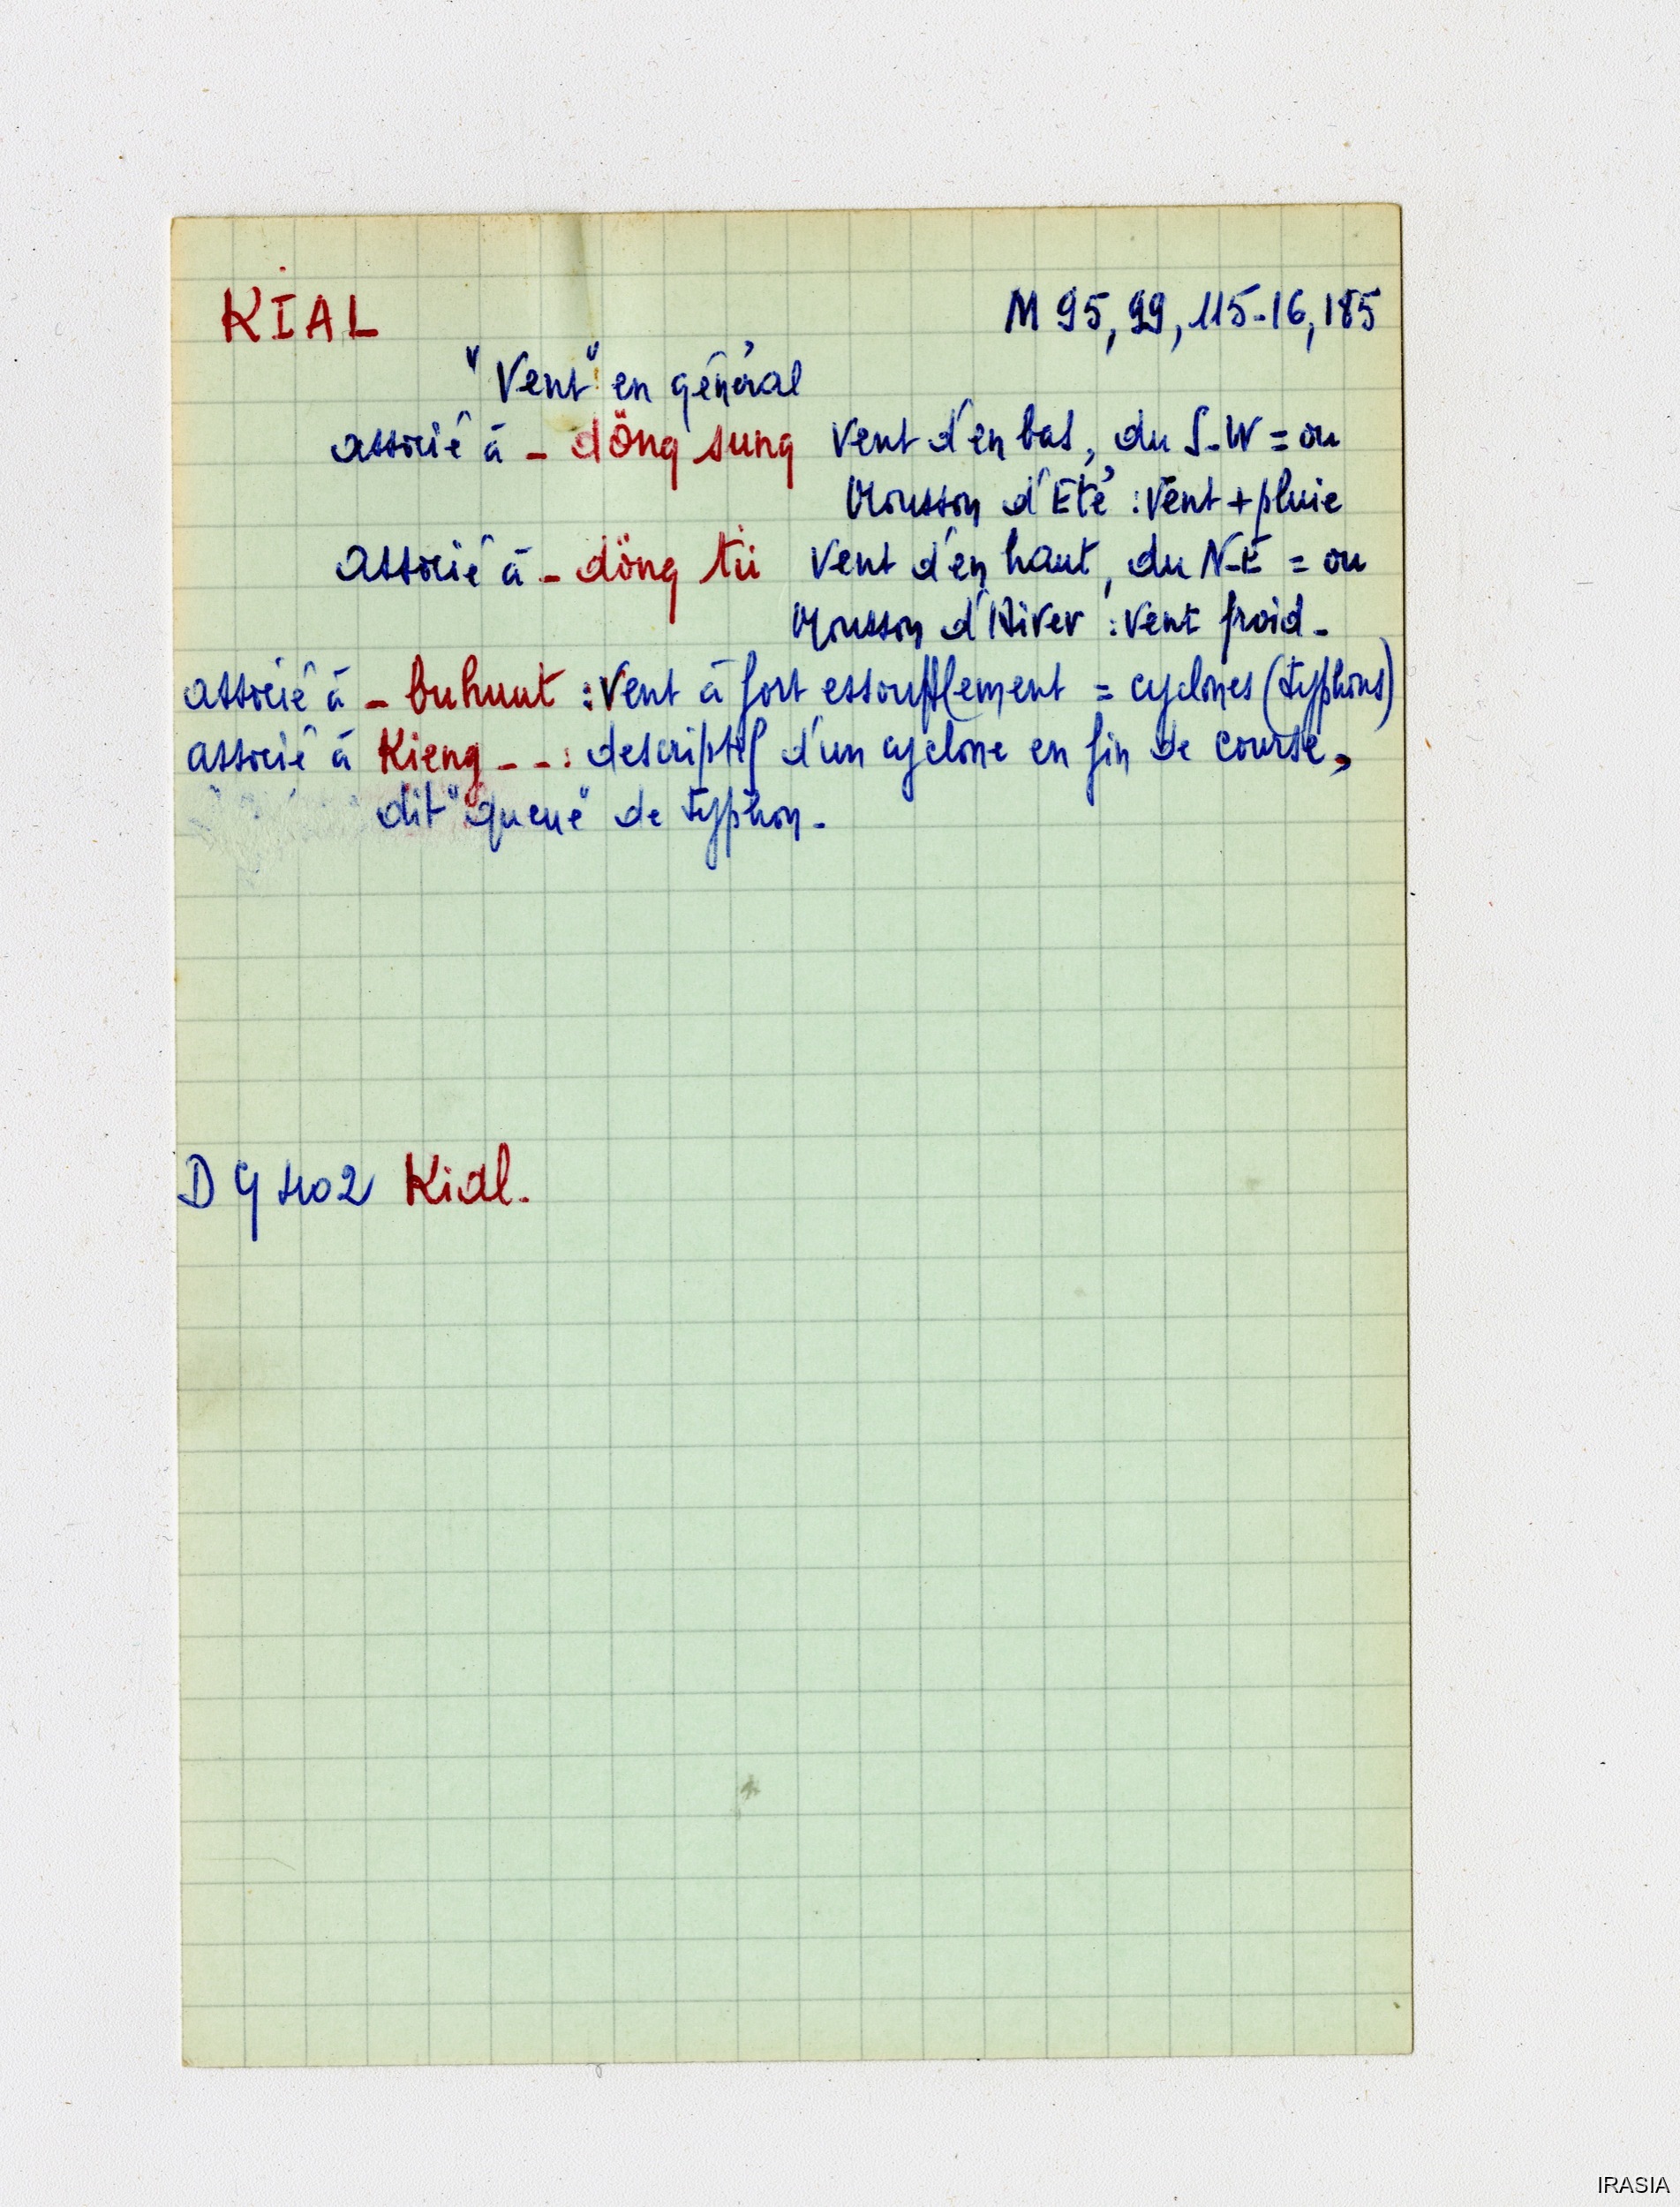 KIAL M 95, 99, 115-16, 185
"Vent" en général
associé à - döng sung Vent d'en bas, du S-W = ou
Mousson d'Eté : Vent + pluie
associé à - döng tü Vent d'en haut, du N-E = ou
Mousson d'Hiver : vent froid -
associé à - buhuut : Vent à fort essoufflement = cyclones (typhons)
associé à Kieng - - : descriptif d'un cyclone en fin de course,
dit "queue" de typhon -
DG 402 Kial.
IRASIA